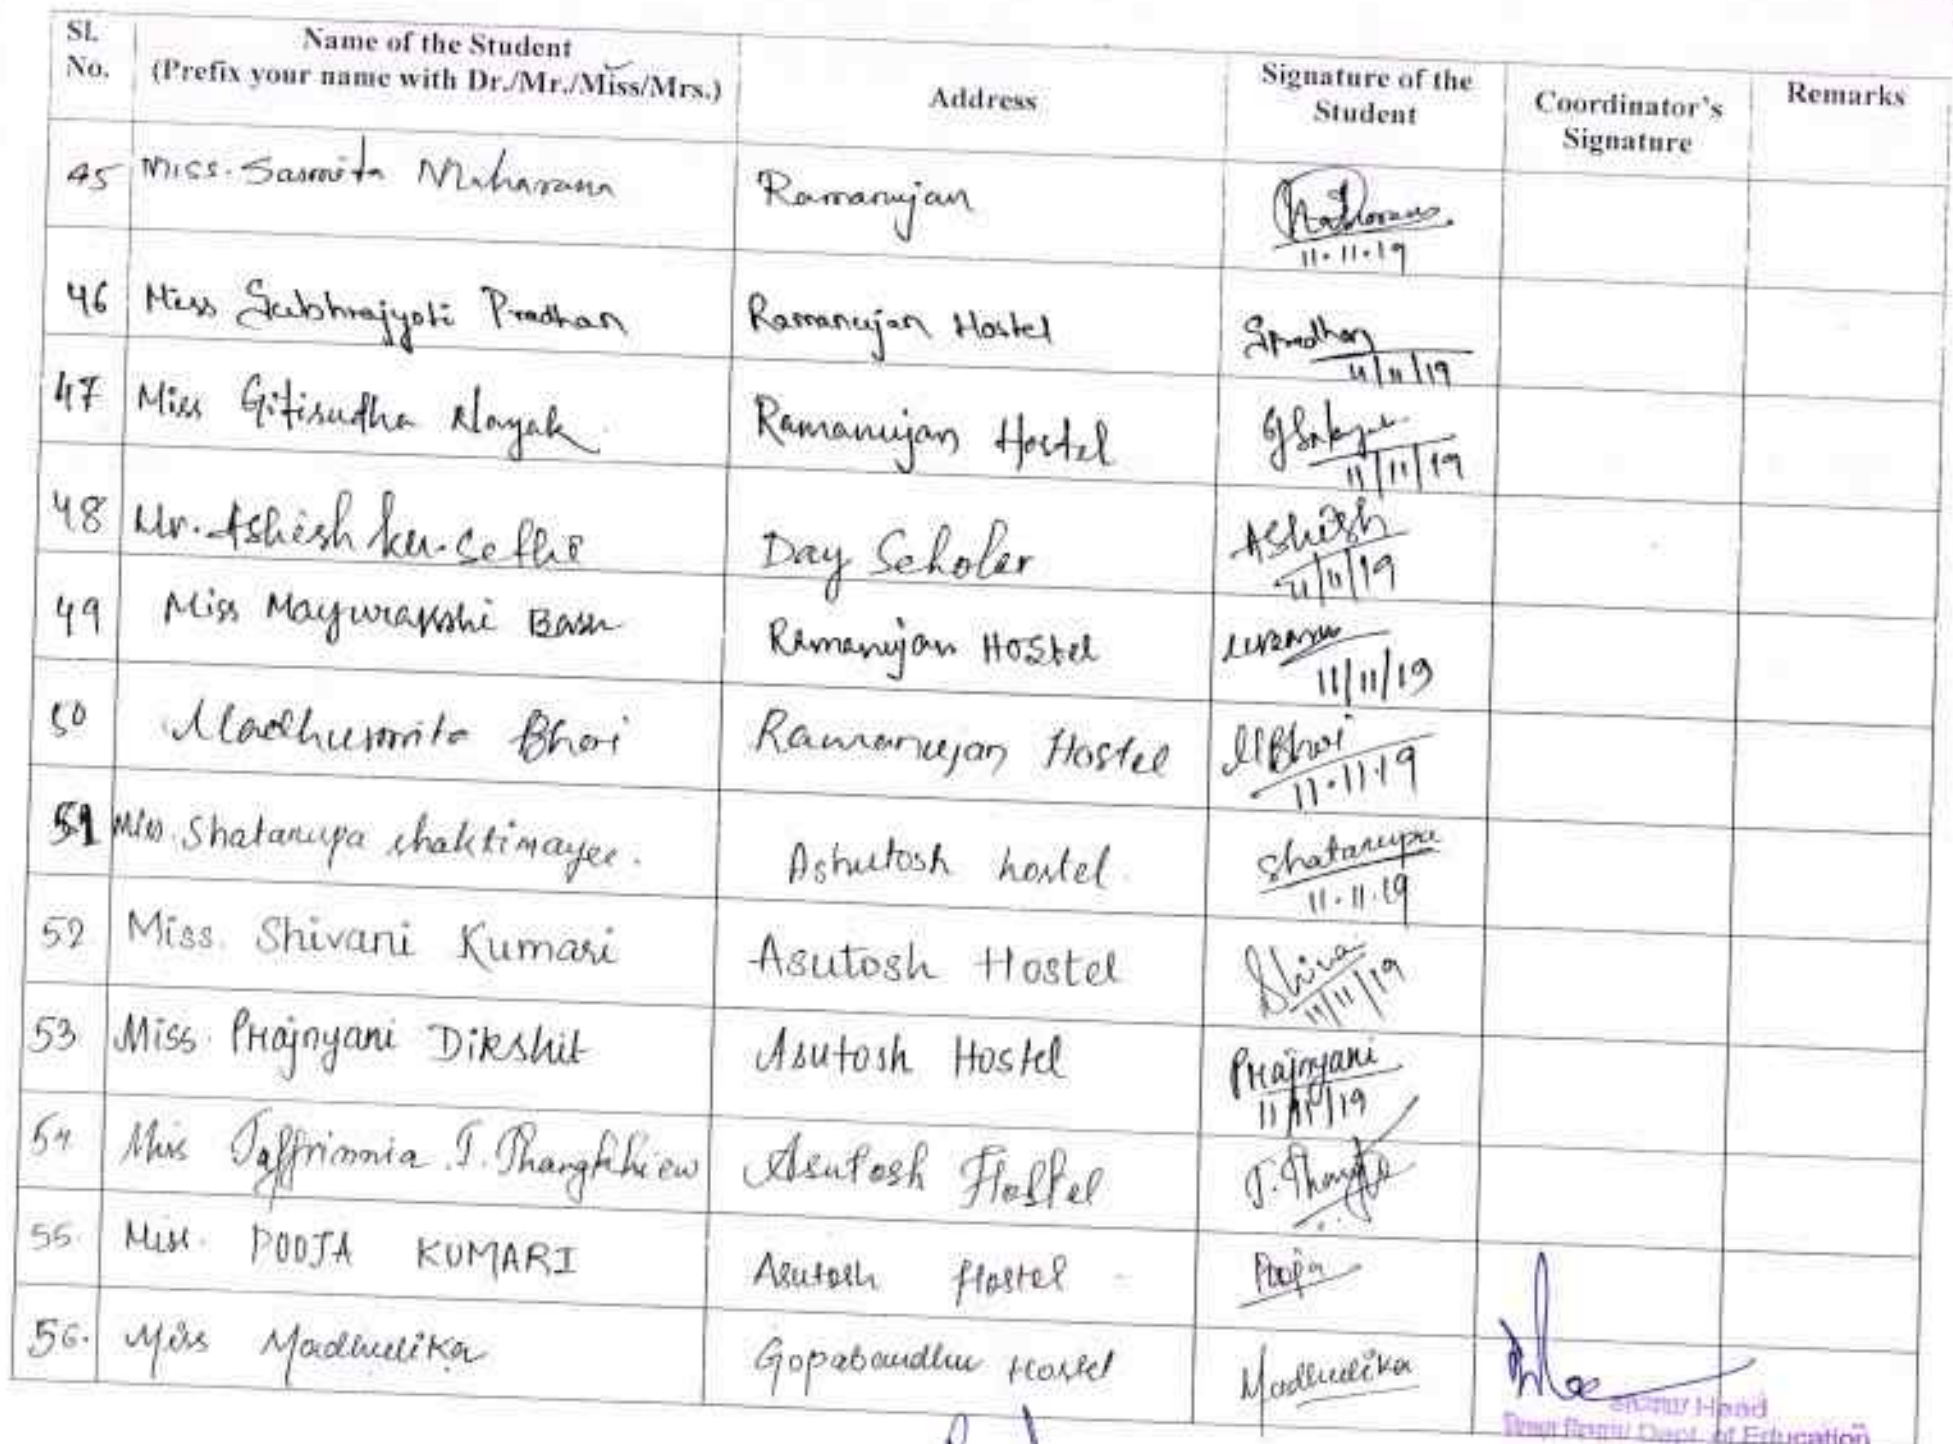 Sl. No. Name of the Student (Prefix your name with Dr./Mr./Miss/Mrs.) Address Signature of the Student Coordinator's Signature Remarks
45 Miss. Sasmita Maharana Ramanujan 11.11.19
46 Miss Subhrajyoti Pradhan Ramanujan Hostel SPradhan 11/11/19
47 Miss Gitisudha Nayak Ramanujan Hostel 11/11/19
48 Mr. Ashish Ku. Sethi Day Scholar Ashish 11/11/19
49 Miss Mayurakshi Basu Ramanujan Hostel MBasu 11/11/19
50 Madhusmita Bhoi Ramanujan Hostel MBhoi 11.11.19
51 Miss. Shatarupa Shaktimayee. Ashutosh hostel. Shatarupa 11.11.19
52 Miss. Shivani Kumari Asutosh Hostel Shiva 11/11/19
53 Miss. Prajnyani Dikshit Asutosh Hostel Prajnyani 11/11/19
54 Miss Taffrinnia . T. Thangkhiew Asutosh Hostel
55. Miss. POOJA KUMARI Asutosh Hostel Pooja
56. Miss Madhulika Gopabandhu Hostel Madhulika
Head
Dept. of Education